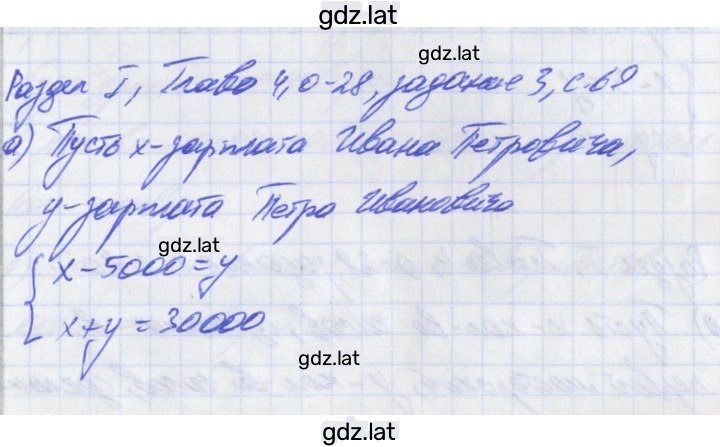 gdz.lat
gdz.lat
Раздел I, Глава 4, О-28, задание 3, с.69
а) Пусть x - зарплата Ивана Петровича,
gdz.lat
y - зарплата Петра Ивановича
gdz.lat
x - 5000 = y
x + y = 30000
gdz.lat
gdz.lat